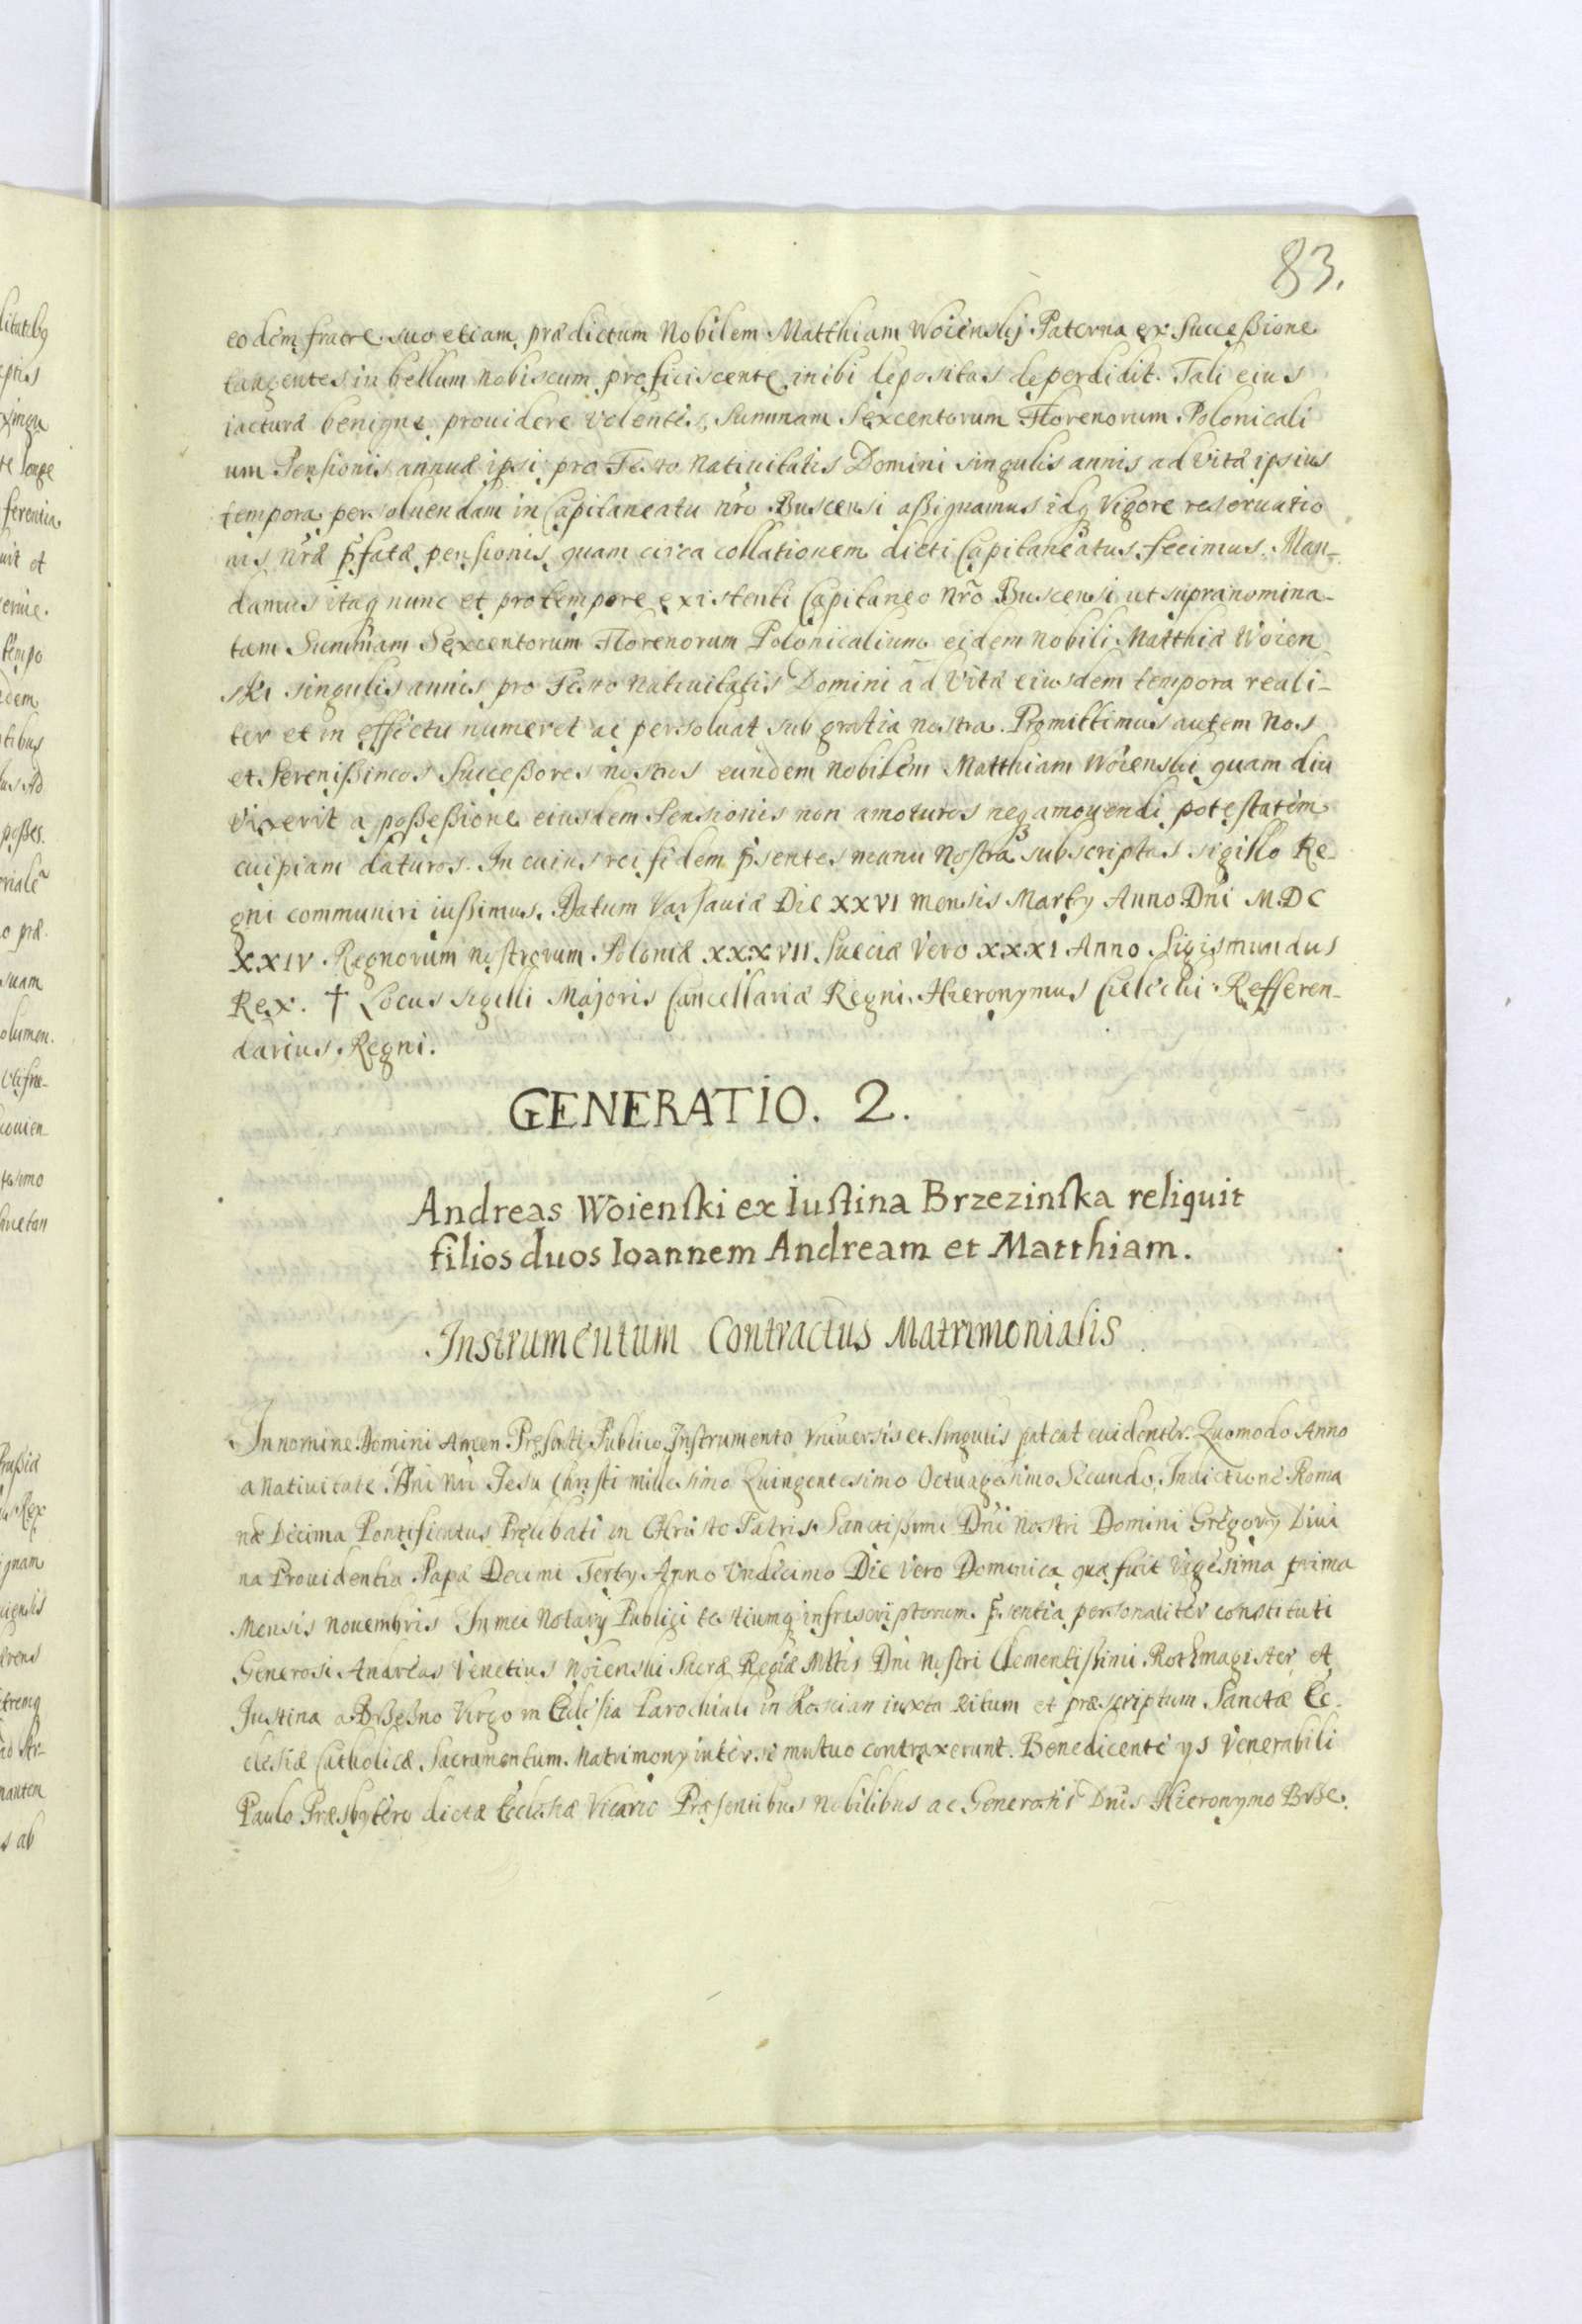 83.
eodem fratre suo etiam prædictum Nobilem Matthiam Woienskj Paterna ex Succeßione
tangentes in bellum nobiscum proficiscente inibi depositas deperdidit. Tali eius
iacturæ benigne prouidere volentes, Summam Sexcentorum Florenorum Polonicali
um Pensionis annuæ ipsi pro Festo Natiuitatis Domini singulis annis ad Vitæ ipsius
tempora persoluendam in Capitaneatu nro Buscensi aßignamus idq Vigore reseruatio
nis nræ p̃fatæ pensionis quam circa collationem dicti Capitaneatus fecimus. Man-
damus itaq nunc et pro tempore existenti Capitaneo nrõ Buscensi ut supranomina-
tam Summam Sexcentorum Florenorum Polonicalium eidem Nobili Matthiæ Woien
ski singulis annis pro Festo Natiuitatis Domini ad Vitæ eiusdem tempora reali-
ter et in effectu numeret ac persoluat sub gratia nostra. Promittimus autem Nos
et Serenißimos Succeßores nostros eundem Nobilem Matthiam Woienski quam diu
vixerit a poßeßione eiusdem Pensionis non amoturos neq amouendi potestatem
cuipiam daturos. In cuius rei fidem p̃sentes manu Nostra subscriptas sigillo Re-
gni communiri iußimus. Datum Varsauiæ Die XXVI mensis Martÿ Anno Dni M.DC
XXIV Regnorum nostrorum Poloniæ XXXVII Sueciæ Vero XXXI Anno Sigismundus
Rex. † Locus sigilli Majoris Cancellariæ Regni. Hieronymus Cielecki Refferen-
darius Regni.
GENERATIO. 2.
Andreas Woienski ex Iustina Brzezinska reliquit
filios duos Ioannem Andream et Matthiam.
Instrumentum Contractus Matrimonialis
In nomine Domini Amen. Presenti Publico Instrumento Vniuersis et Singulis pateat euidenter. Quomodo Anno
a Natiuitate Dni Nri Jesu Christi millesimo Quingentesimo Octuagesimo Secundo. Indictione Roma
næ Decima Pontificatus in Christo Patris Sanctißimi Dni Nostri Domini Gregorÿ Diui
na Prouidentia Papæ Decimi Tertÿ Anno Vndecimo Die Vero Dominica quæ fuit Vigesima prima
Mensis Nouembris In mei Notarÿ Publici testiumq infrascriptorum p̃sentia personaliter constituti
Generosi Andreas Venetius Woienski Sacræ Regiæ Mttis Dni Nostri Clementißimi Rothmagister et
Justina a Virgo in Ecclesia Parochiali in iuxta Ritum et præscriptum Sanctæ Ec-
clesiæ Catholicæ Sacramentum Matrimonÿ inter se mutuo contraxerunt. Benedicente ijs Venerabili
Paulo Præsbytero dictæ Ecclesiæ Vicario Præsentibus Nobilibus ac Generosis Dnis Hieronymo